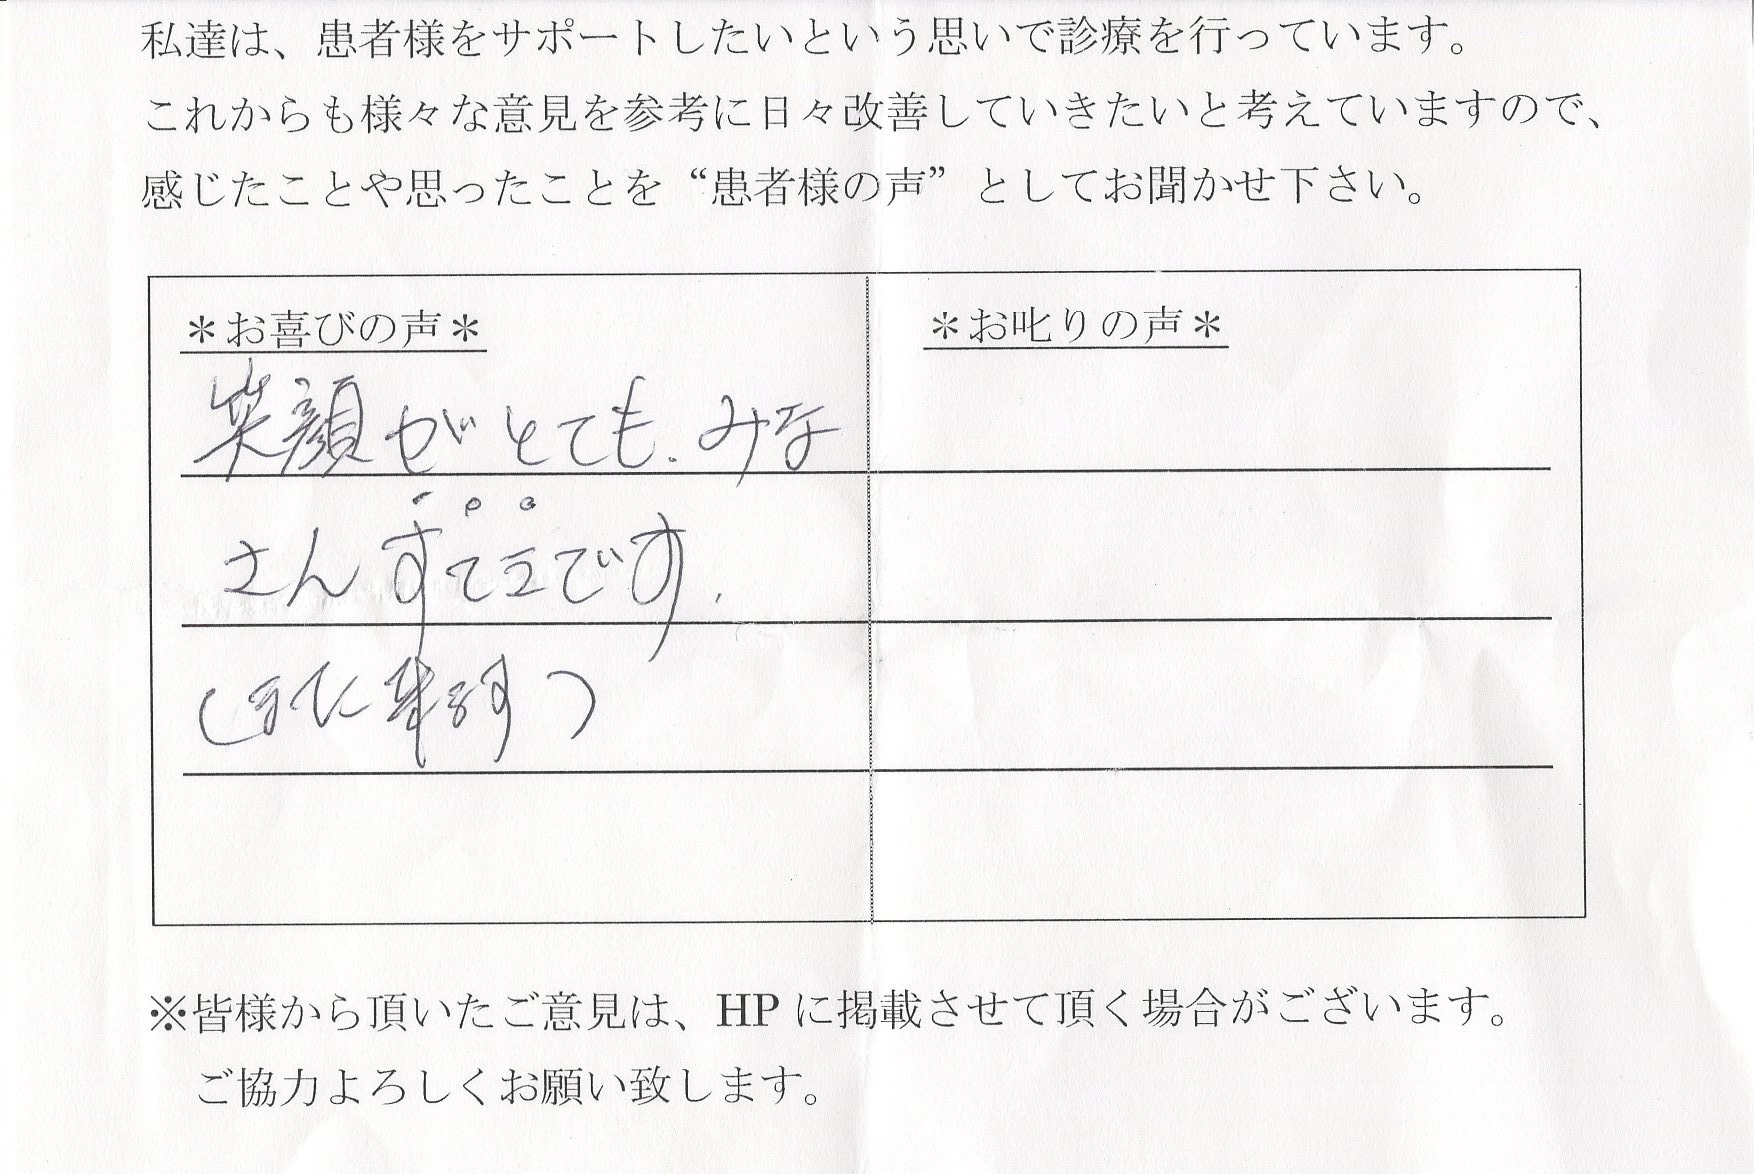 私達は、患者様をサポートしたいという思いで診療を行っています。
これからも様々な意見を参考に日々改善していきたいと考えていますので、
感じたことや思ったことを“患者様の声”としてお聞かせ下さい。
＊お喜びの声＊
笑顔がとても、みな
さんすてきです。
(また来ます)
＊お叱りの声＊
※皆様から頂いたご意見は、HPに掲載させて頂く場合がございます。
ご協力よろしくお願い致します。